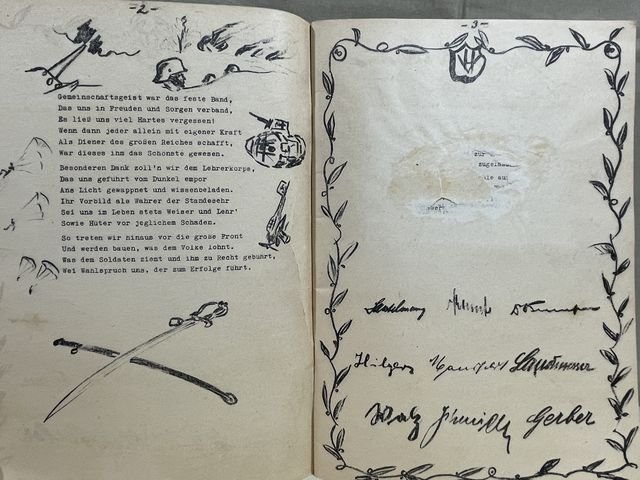 -2-
Gemeinschaftsgeist war das feste Band,
Das uns in Freuden und Sorgen verband,
Es ließ uns viel Hartes vergessen!
Wenn dann jeder allein mit eigener Kraft
Als Diener des großen Reiches schafft,
War dieses ihm das Schonste gewesen.
Besonderen Dank zoll'n wir dem Lehrerkorps,
Das uns geführt vom Dunkel empor
Ans Licht gewappnet und wissenbeladen.
Ihr Vorbild als Wahrer der Standesehr
Sei uns im Leben stets Weiser und Lehr'
Sowie Hüter vor jeglichem Schaden.
So treten wir hinaus vor die große Front
Und werden bauen, was dem Volke lohnt.
Was dem Soldaten ziemt und ihm zu Recht gebuhrt,
Wei Wahlspruch uns, der zum Erfolge fuhrt.
-3-
zur
Hilgers
Walz Gerber